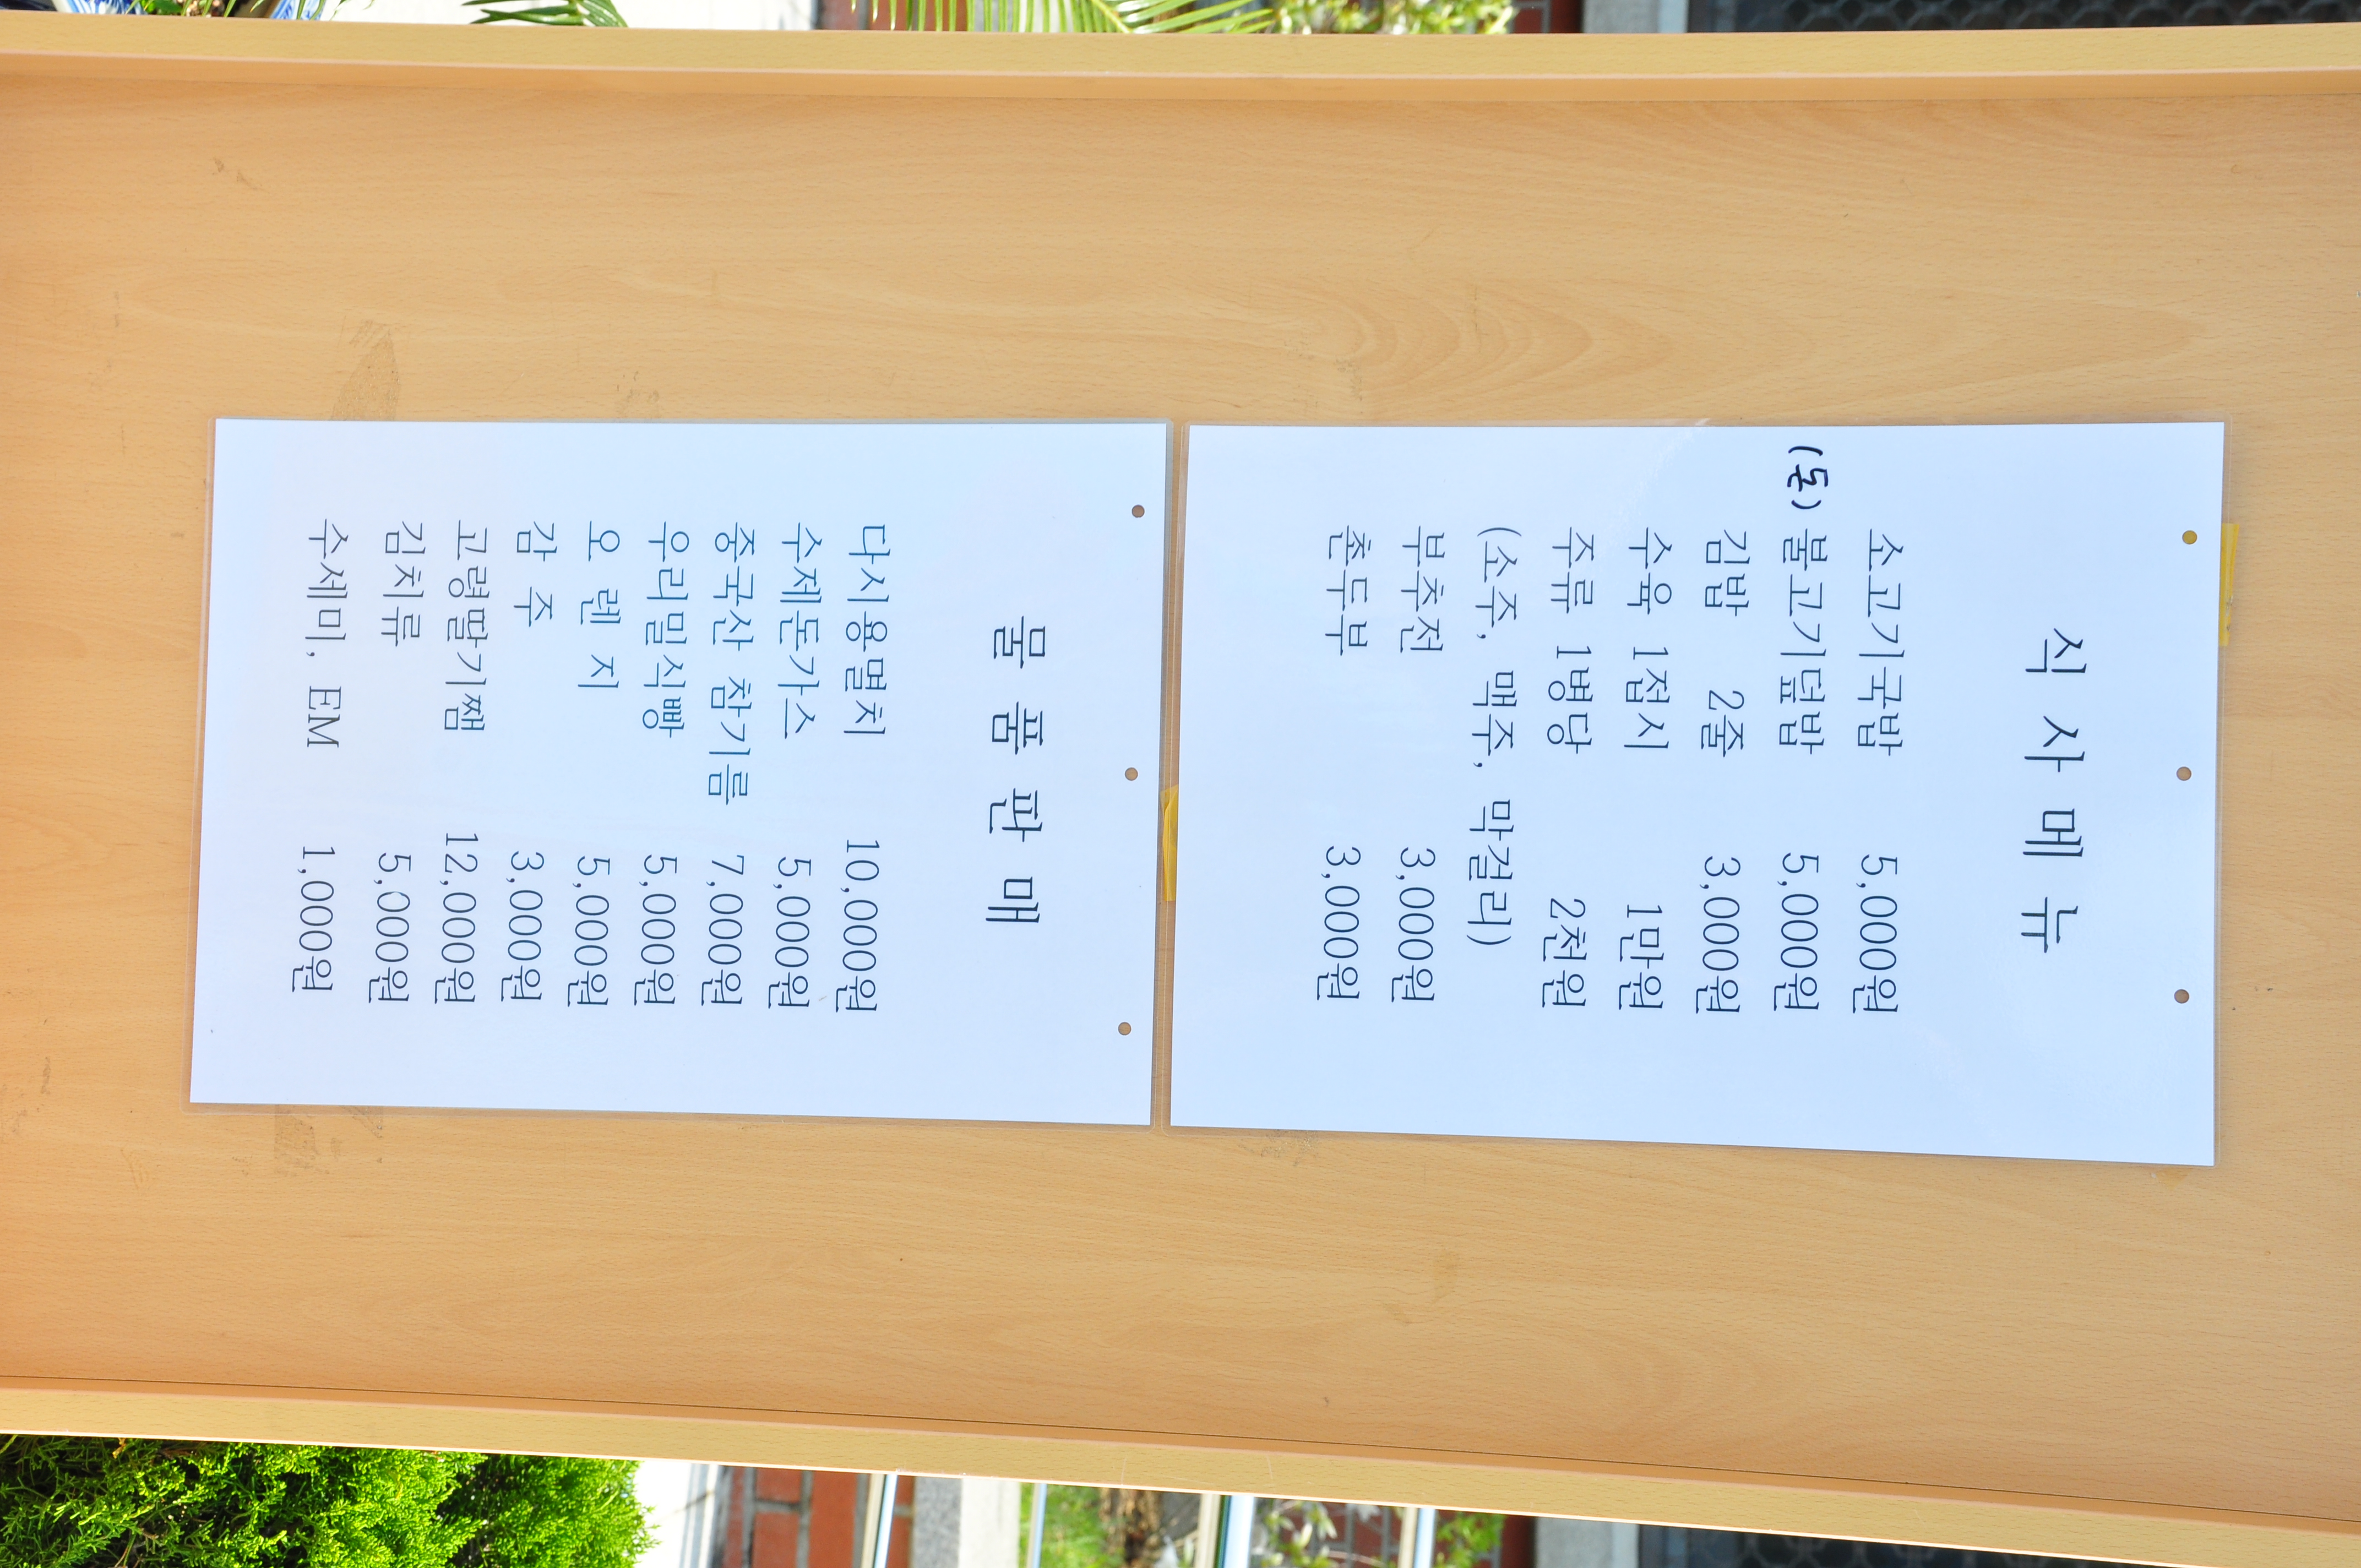 식 사 메 뉴
소고기국밥 5,000원
(돈) 불고기덮밥 5,000원
김밥 2줄 3,000원
수육 1접시 1만원
주류 1병당 2천원
(소주, 맥주, 막걸리)
부추전 3,000원
촌두부 3,000원
물 품 판 매
다시용멸치 10,000원
수제돈가스 5,000원
중국산 참기름 7,000원
우리밀식빵 5,000원
오 렌 지 5,000원
감 주 3,000원
고령딸기쨈 12,000원
김치류 5,000원
수세미, EM 1,000원